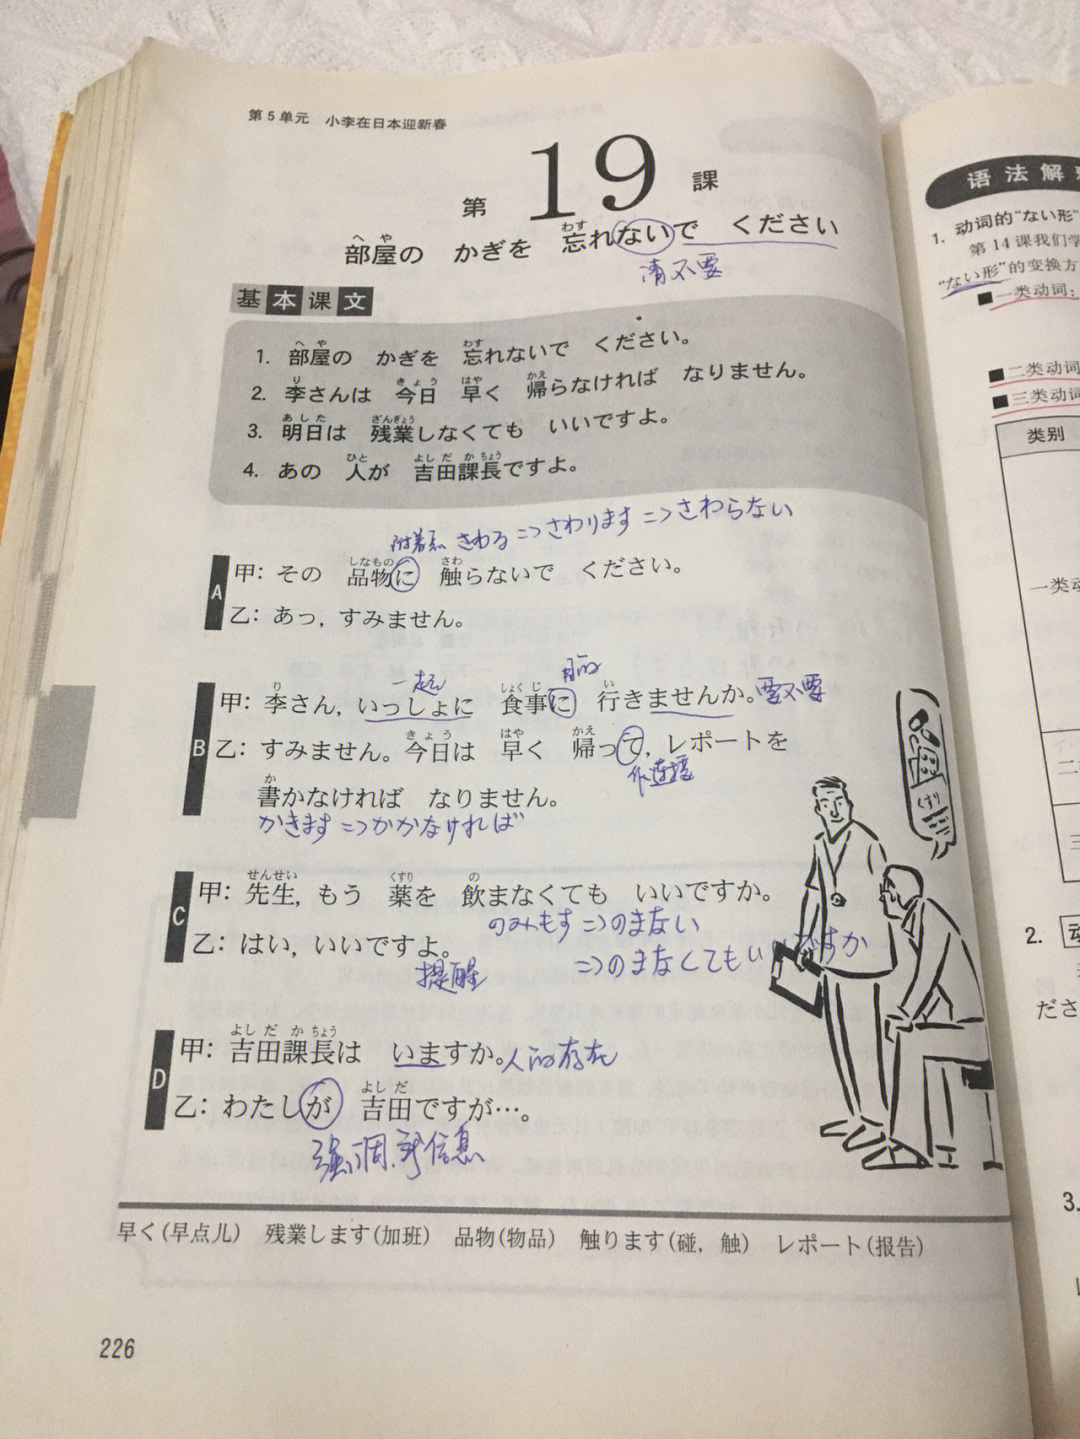 第5单元 小李在日本迎新春
第 19 課
部屋の かぎを 忘れないで ください
へ や わす
请不要
基本课文
1. 部屋の かぎを 忘れないで ください。
へ や わす
2. 李さんは 今日 早く 帰らなければ なりません。
り きょう はや かえ
3. 明日は 残業しなくても いいですよ。
あした ざんぎょう
4. あの 人が 吉田課長ですよ。
ひと よし だ か ちょう
附着点 さわる => さわります => さわらない
A
甲: その 品物に 触らないで ください。
しなもの さわ
乙: あっ, すみません。
一起 目的
B
甲: 李さん, いっしょに 食事に 行きませんか。要不要
り しょく じ い
乙: すみません。今日は 早く 帰って, レポートを
きょう はや かえ
作连接
書かなければ なりません。
か
かきます => かかなければ
C
甲: 先生, もう 薬を 飲まなくても いいですか。
せんせい くすり の
のみもす => のまない
乙: はい, いいですよ。
提醒 => のまなくてもいいですか
D
甲: 吉田課長は いますか。人的存在
よし だ か ちょう
乙: わたしが 吉田ですが…。
よし だ
强调.新信息
早く(早点儿) 残業します(加班) 品物(物品) 触ります(碰, 触) レポート(报告)
226
语法解
1. 动词的“ない形”
第14课我们学
“ない形”的变换方
■一类动词:
■二类动词
■三类动词
类别
一类动
二
三
2. 动
ださ
3.